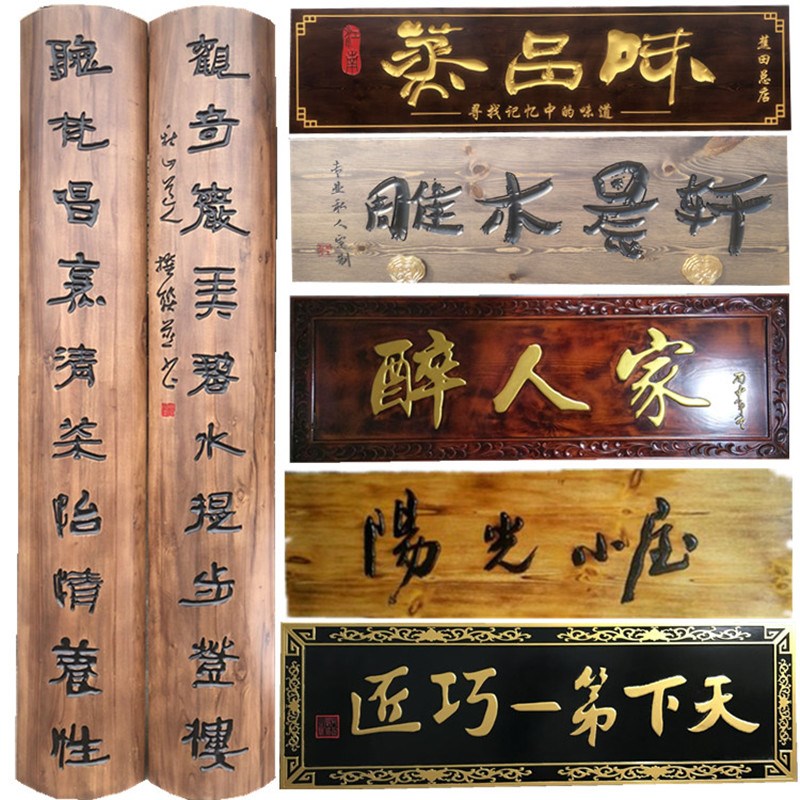 觀奇巖碧水提步登樓
聽梵唱烹清茶怡情養性
蒸品味
蕉田总店
寻找记忆中的味道
轩晨木雕
专业私人定制
醉人家
陽光小屋
天下第一巧匠